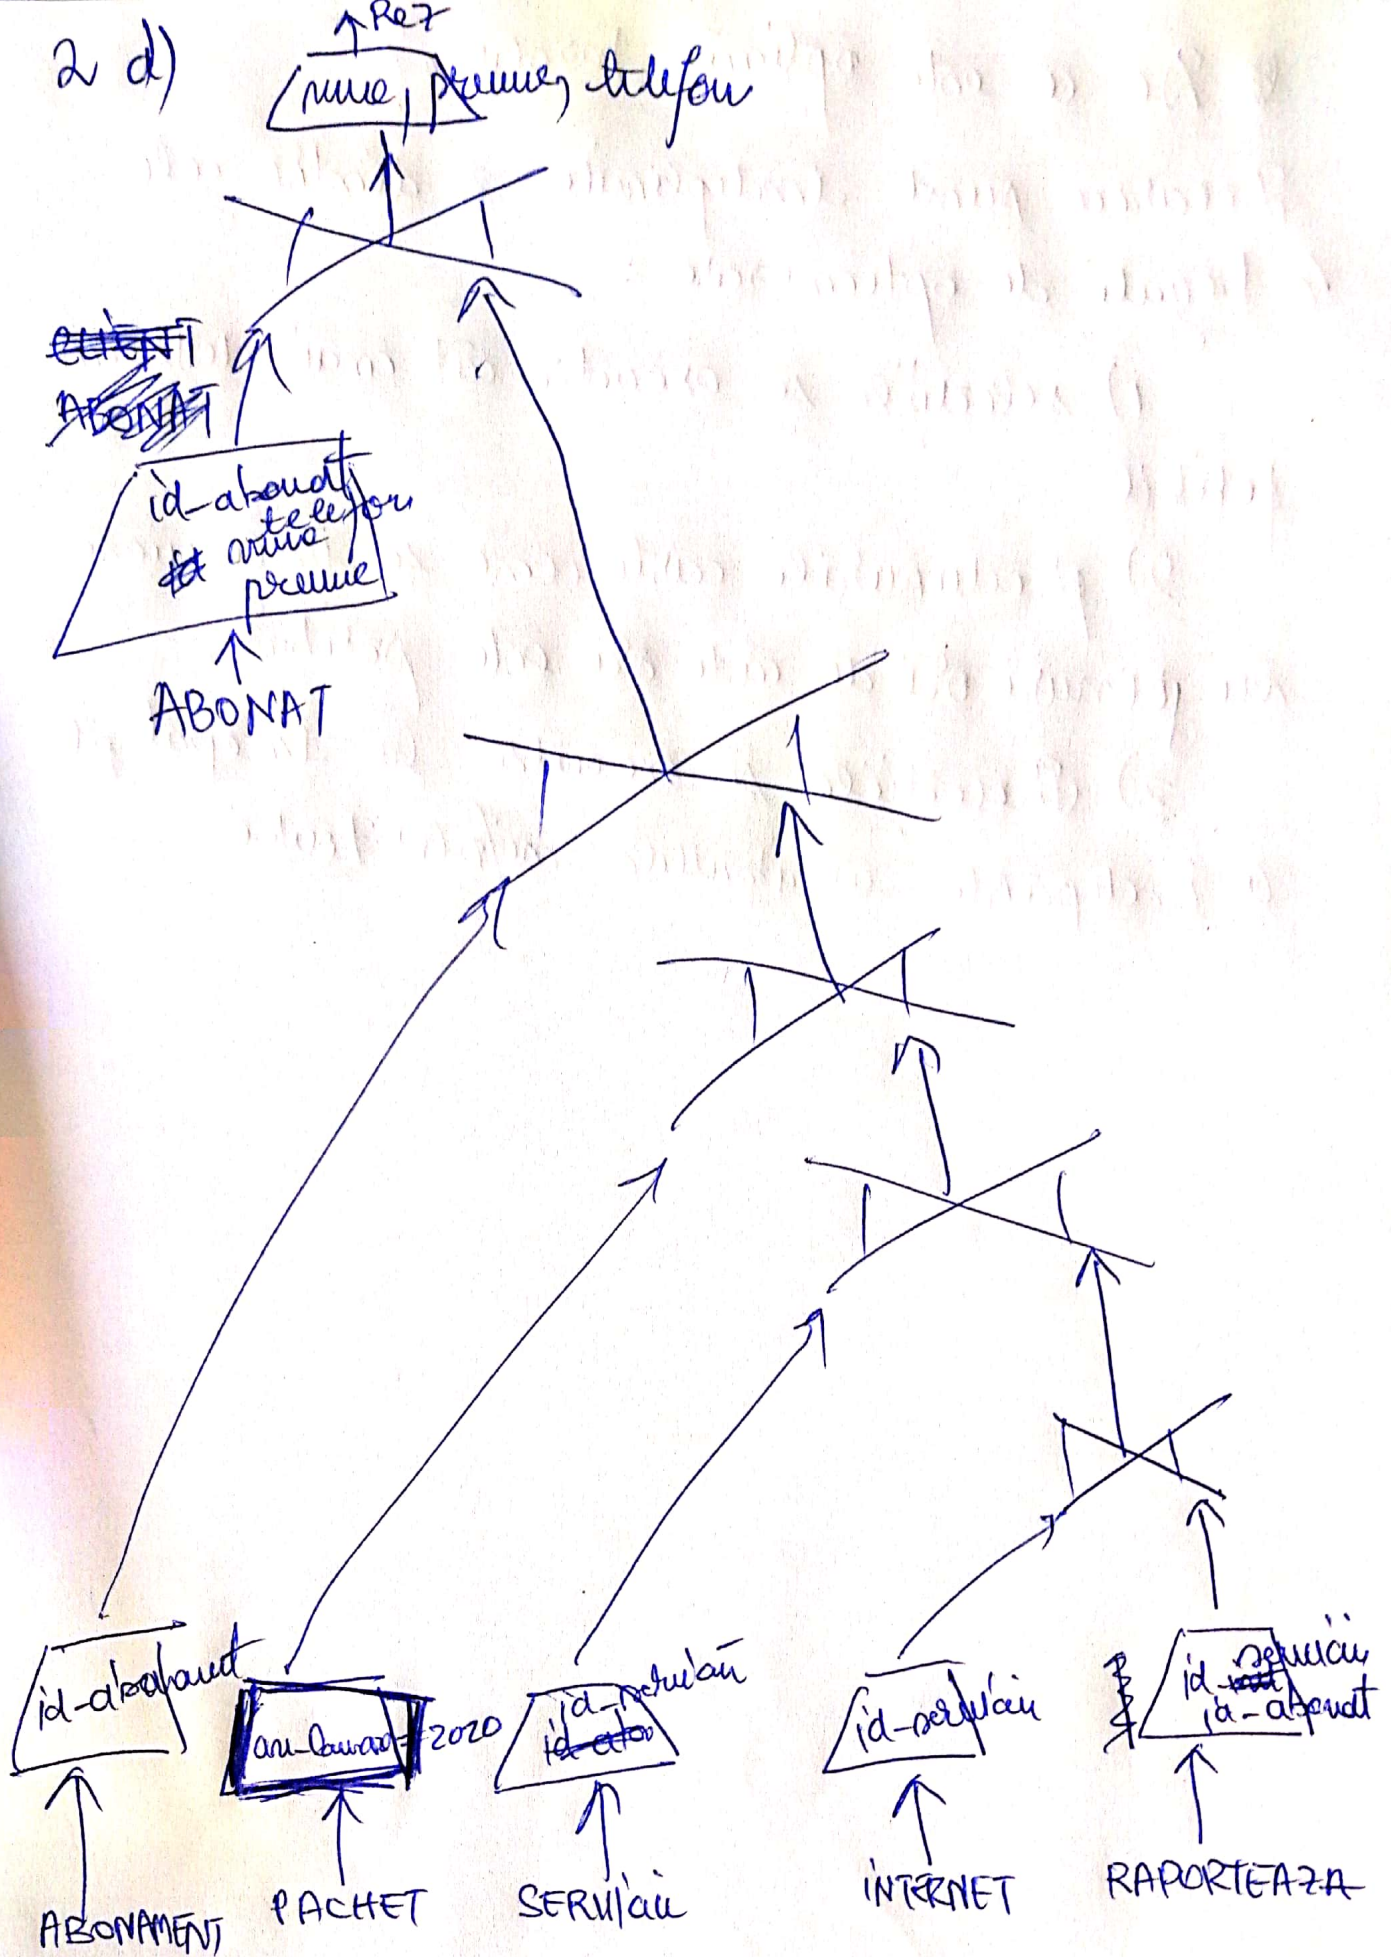 2 d)
Rez
nume, prenume, telefon
id_abonat
telefon
nume
prenume
ABONAT
id-abonat
an-lansare = 2020
id-serviciu
id-serviciu
id-serviciu
id-abonat
ABONAMENT
PACHET
SERViciu
iNTERNET
RAPORTEAZA